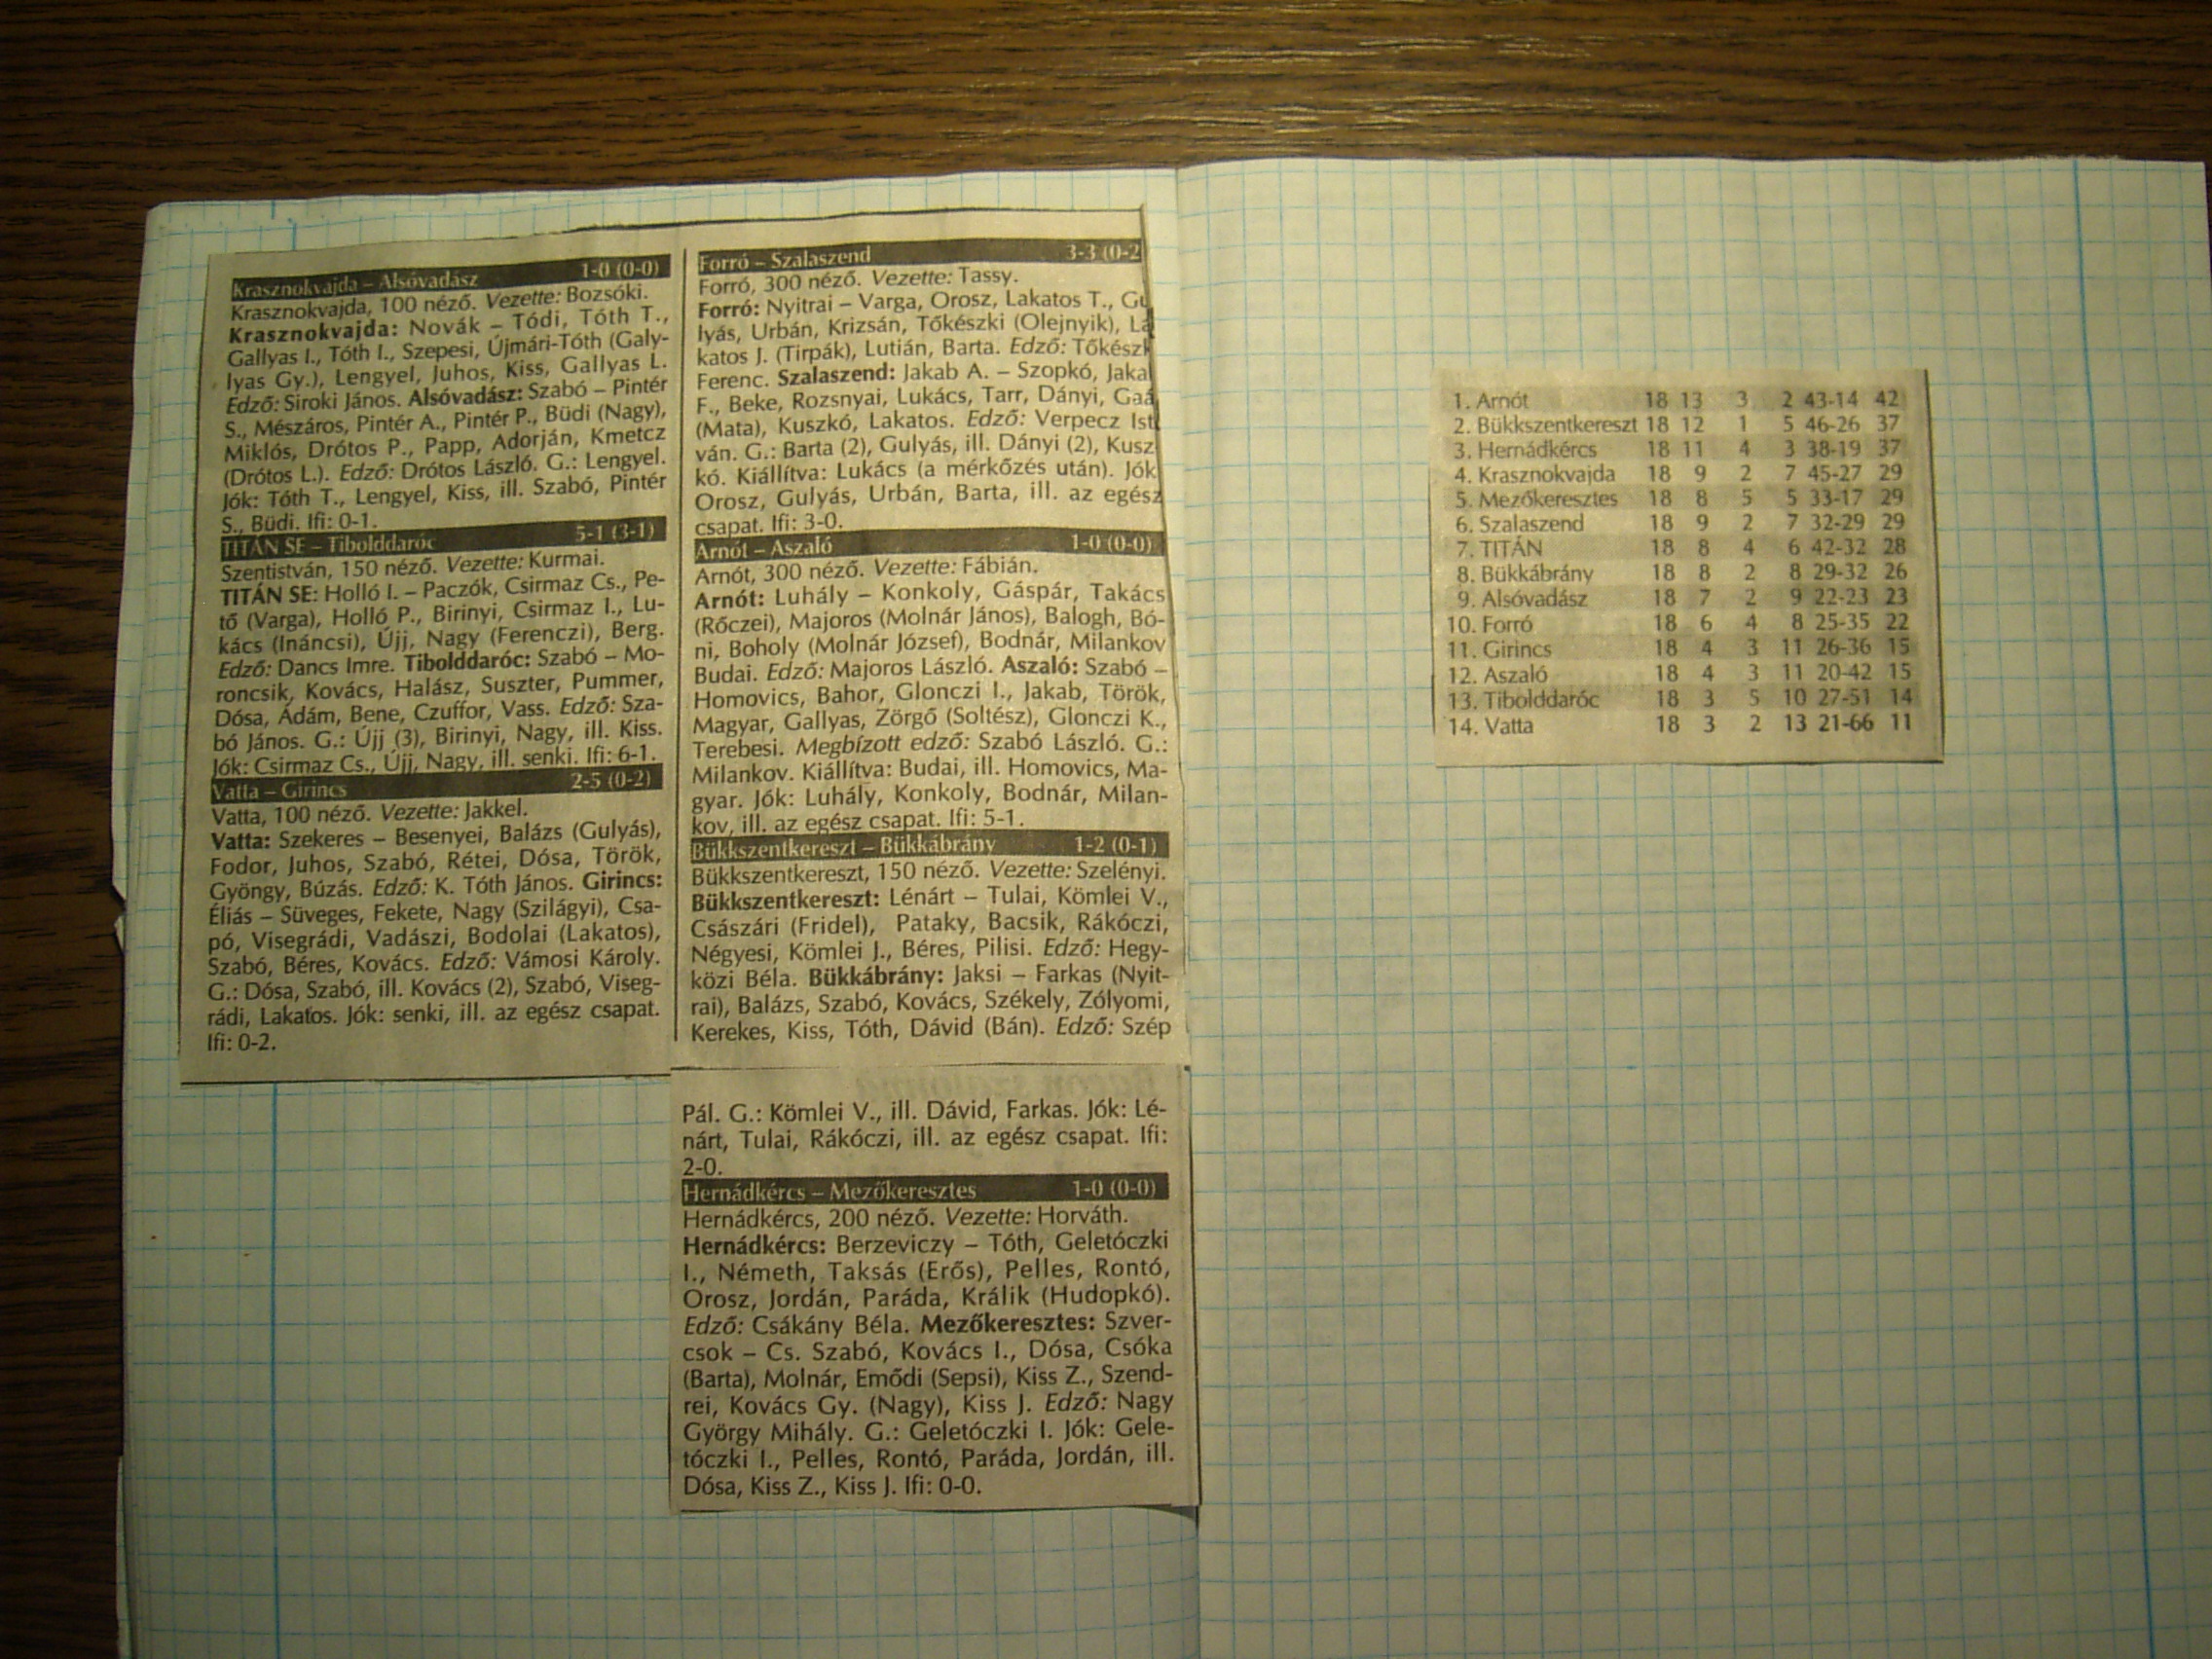 Krasznokvajda – Alsóvadász 1-0 (0-0)
Krasznokvajda, 100 néző. Vezette: Bozsóki.
Krasznokvajda: Novák – Tódi, Tóth T.,
Gallyas I., Tóth I., Szepesi, Újmári-Tóth (Galy-
lyas Gy.), Lengyel, Juhos, Kiss, Gallyas L.
Edző: Siroki János. Alsóvadász: Szabó – Pintér
S., Mészáros, Pintér A., Pintér P., Büdi (Nagy),
Miklós, Drótos P., Papp, Adorján, Kmetcz
(Drótos L.). Edző: Drótos László. G.: Lengyel.
Jók: Tóth T., Lengyel, Kiss, ill. Szabó, Pintér
S., Büdi. Ifi: 0-1.
TITÁN SE – Tibolddaróc 5-1 (3-1)
Szentistván, 150 néző. Vezette: Kurmai.
TITÁN SE: Holló I. – Paczók, Csirmaz Cs., Pe-
tő (Varga), Holló P., Birinyi, Csirmaz I., Lu-
kács (Ináncsi), Újj, Nagy (Ferenczi), Berg.
Edző: Dancs Imre. Tibolddaróc: Szabó – Mo-
roncsik, Kovács, Halász, Suszter, Pummer,
Dósa, Ádám, Bene, Czuffor, Vass. Edző: Sza-
bó János. G.: Újj (3), Birinyi, Nagy, ill. Kiss.
Jók: Csirmaz Cs., Újj, Nagy, ill. senki. Ifi: 6-1.
Vatta – Girincs 2-5 (0-2)
Vatta, 100 néző. Vezette: Jakkel.
Vatta: Szekeres – Besenyei, Balázs (Gulyás),
Fodor, Juhos, Szabó, Rétei, Dósa, Török,
Gyöngy, Búzás. Edző: K. Tóth János. Girincs:
Éliás – Süveges, Fekete, Nagy (Szilágyi), Csa-
pó, Visegrádi, Vadászi, Bodolai (Lakatos),
Szabó, Béres, Kovács. Edző: Vámosi Károly.
G.: Dósa, Szabó, ill. Kovács (2), Szabó, Viseg-
rádi, Lakatos. Jók: senki, ill. az egész csapat.
Ifi: 0-2.
Forró – Szalaszend 3-3 (0-2
Forró, 300 néző. Vezette: Tassy.
Forró: Nyitrai – Varga, Orosz, Lakatos T., Gu
lyás, Urbán, Krizsán, Tőkészki (Olejnyik), La
katos J. (Tirpák), Lutián, Barta. Edző: Tőkészk
Ferenc. Szalaszend: Jakab A. – Szopkó, Jaka
F., Beke, Rozsnyai, Lukács, Tarr, Dányi, Gaá
(Mata), Kuszkó, Lakatos. Edző: Verpecz Ist
ván. G.: Barta (2), Gulyás, ill. Dányi (2), Kusz
kó. Kiállítva: Lukács (a mérkőzés után). Jók
Orosz, Gulyás, Urbán, Barta, ill. az egész
csapat. Ifi: 3-0.
Arnót – Aszaló 1-0 (0-0)
Arnót, 300 néző. Vezette: Fábián.
Arnót: Luhály – Konkoly, Gáspár, Takács
(Rőczei), Majoros (Molnár János), Balogh, Bó-
ni, Boholy (Molnár József), Bodnár, Milankov
Budai. Edző: Majoros László. Aszaló: Szabó –
Homovics, Bahor, Glonczi I., Jakab, Török,
Magyar, Gallyas, Zörgő (Soltész), Glonczi K.,
Terebesi. Megbízott edző: Szabó László. G.:
Milankov. Kiállítva: Budai, ill. Homovics, Ma-
gyar. Jók: Luhály, Konkoly, Bodnár, Milan-
kov, ill. az egész csapat. Ifi: 5-1.
Bükkszentkereszt – Bükkábrány 1-2 (0-1)
Bükkszentkereszt, 150 néző. Vezette: Szelényi.
Bükkszentkereszt: Lénárt – Tulai, Kömlei V.,
Császári (Fridel), Pataky, Bacsik, Rákóczi,
Négyesi, Kömlei J., Béres, Pilisi. Edző: Hegy-
közi Béla. Bükkábrány: Jaksi – Farkas (Nyit-
rai), Balázs, Szabó, Kovács, Székely, Zólyomi,
Kerekes, Kiss, Tóth, Dávid (Bán). Edző: Szép
Pál. G.: Kömlei V., ill. Dávid, Farkas. Jók: Lé-
nárt, Tulai, Rákóczi, ill. az egész csapat. Ifi:
2-0.
Hernádkércs – Mezőkeresztes 1-0 (0-0)
Hernádkércs, 200 néző. Vezette: Horváth.
Hernádkércs: Berzeviczy – Tóth, Geletóczki
I., Németh, Taksás (Erős), Pelles, Rontó,
Orosz, Jordán, Paráda, Králik (Hudopkó).
Edző: Csákány Béla. Mezőkeresztes: Szver-
csok – Cs. Szabó, Kovács I., Dósa, Csóka
(Barta), Molnár, Emődi (Sepsi), Kiss Z., Szend-
rei, Kovács Gy. (Nagy), Kiss J. Edző: Nagy
György Mihály. G.: Geletóczki I. Jók: Gele-
tóczki I., Pelles, Rontó, Paráda, Jordán, ill.
Dósa, Kiss Z., Kiss J. Ifi: 0-0.
1. Arnót 18 13 3 2 43-14 42
2. Bükkszentkereszt 18 12 1 5 46-26 37
3. Hernádkércs 18 11 4 3 38-19 37
4. Krasznokvajda 18 9 2 7 45-27 29
5. Mezőkeresztes 18 8 5 5 33-17 29
6. Szalaszend 18 9 2 7 32-29 29
7. TITÁN 18 8 4 6 42-32 28
8. Bükkábrány 18 8 2 8 29-32 26
9. Alsóvadász 18 7 2 9 22-23 23
10. Forró 18 6 4 8 25-35 22
11. Girincs 18 4 3 11 26-36 15
12. Aszaló 18 4 3 11 20-42 15
13. Tibolddaróc 18 3 5 10 27-51 14
14. Vatta 18 3 2 13 21-66 11